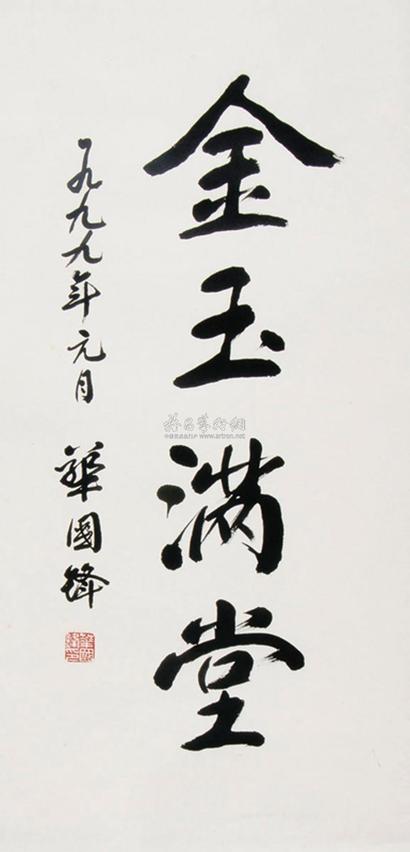 金玉满堂
一九九九年元月 華國鋒
雅昌艺术网
www.artron.net